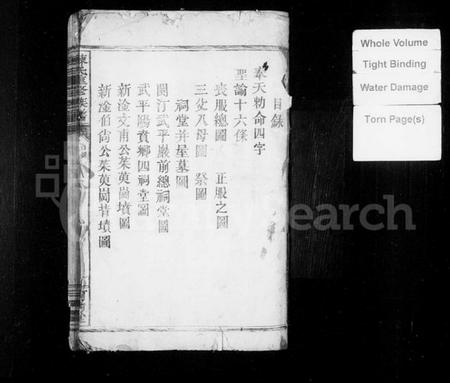 目錄
奉天勅命四字
聖諭十六條
喪服總圖 正服之圖
三父八母圖 祭圖
祠堂并屋墓圖
閩汀武平巖前總祠堂圖
武平陽賁鄉四祠堂圖
新淦文甫公茱萸崗墳圖
新淦伯尙公茱萸崗昔墳圖
Whole Volume
Tight Binding
Water Damage
Torn Page(s)